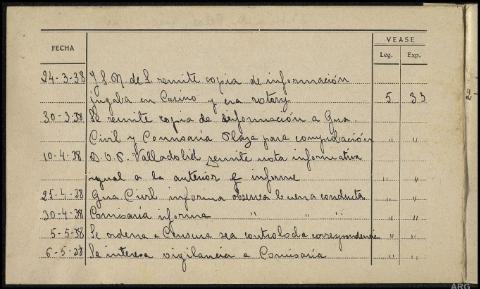 VEASE
FECHA Leg. Exp.
24-3-38 J.S.M. de S. remite copia de información
jugaba en Casino y era rotary 5 33
30-3-38 Se remite copia de información a Gua.
Civil y Comisaría Plaza para comprobación " "
10-4-38 D.O.P. Valladolid remite nota informativa
igual a la anterior informe " "
25-4-38 Gua. Civil informa observa buena conducta " "
30-4-38 Comisaria informa " " " " "
5-5-38 Se ordena a Censura sea controlada correspondencia " "
6-5-38 Se interesa vigilancia a Comisaría " "
2-
ARG